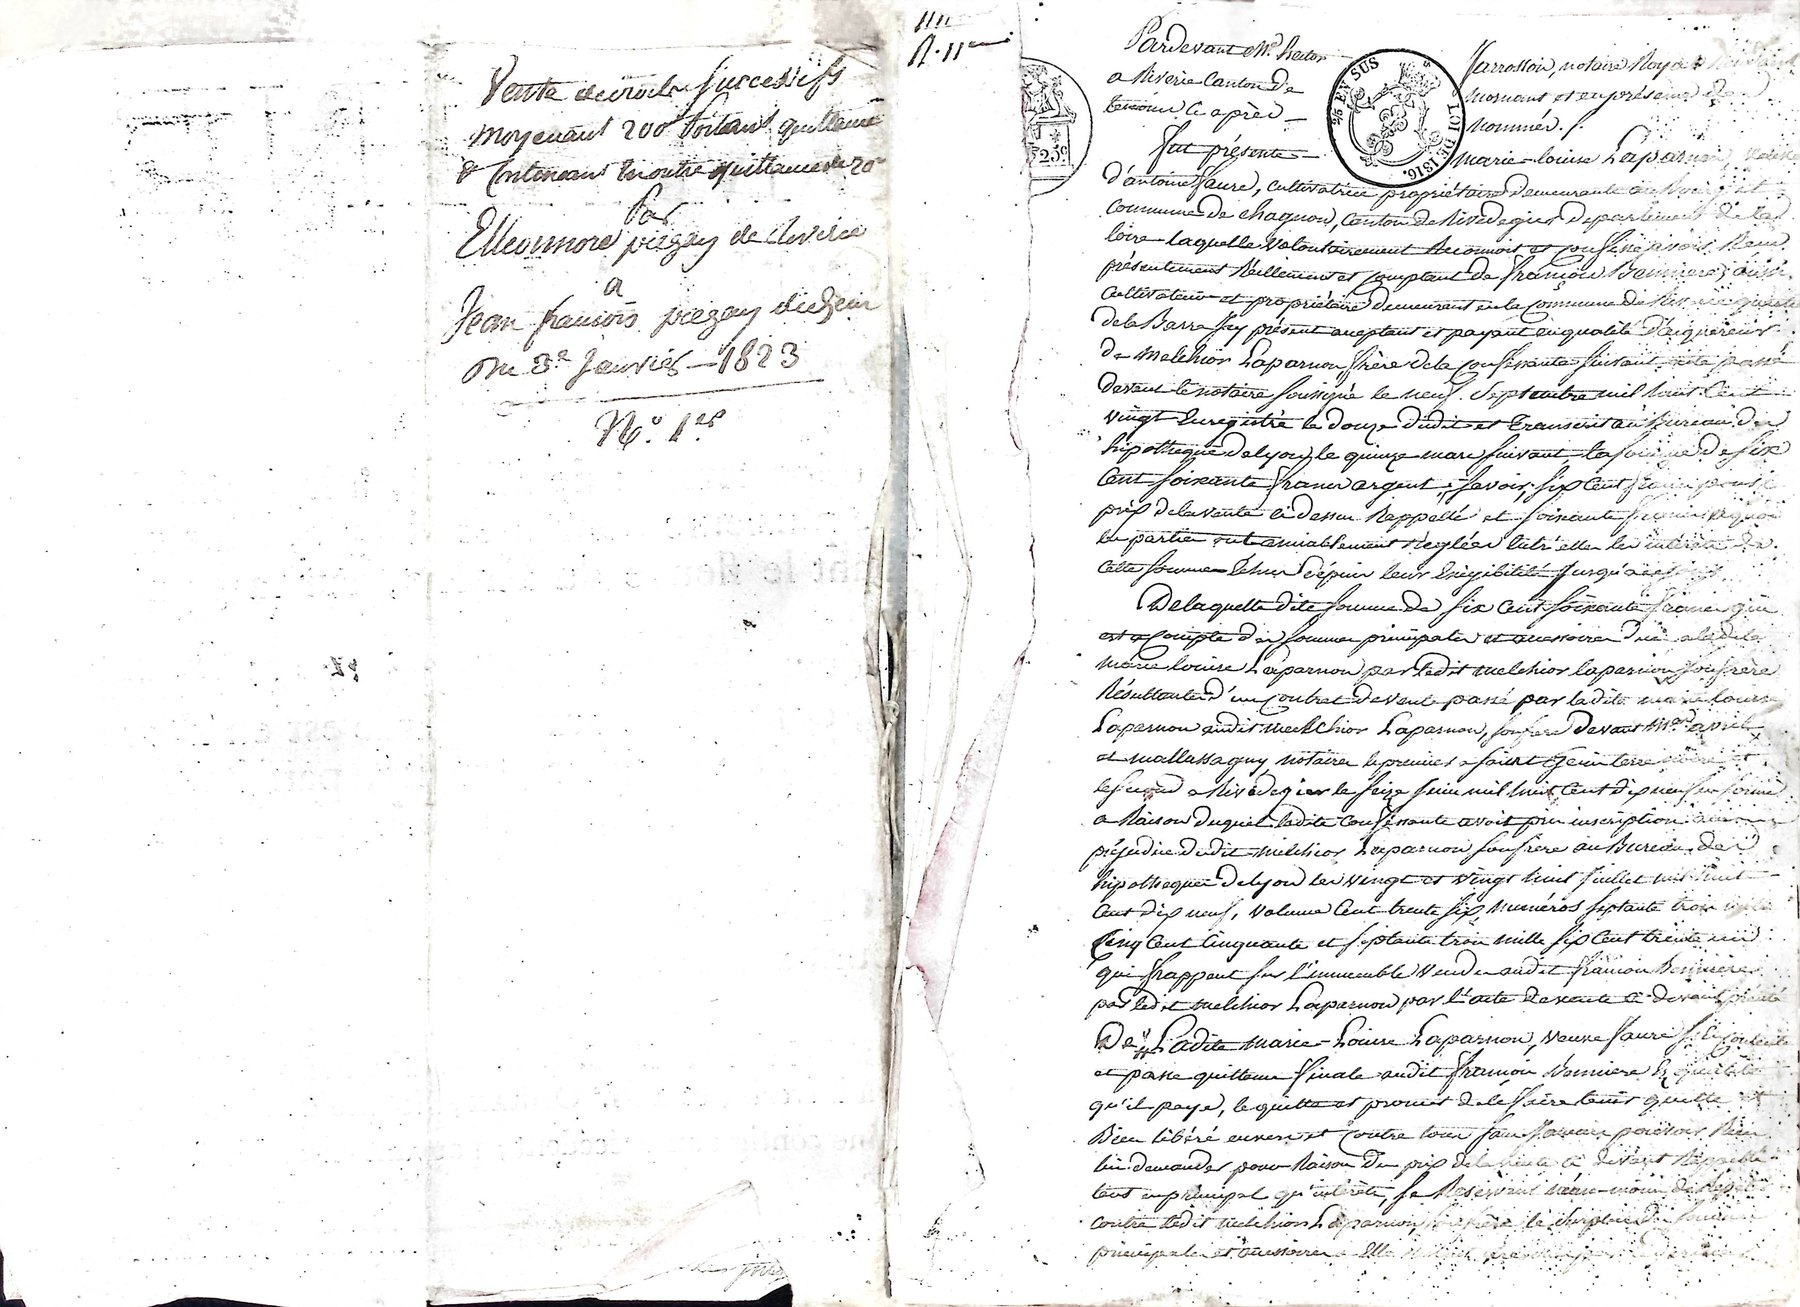 Vente de droits successifs
moyenant 200 f portant quittance
& contenant en outre quittance de 20
Par
Elleonnore piegay de Riverie
a
Jean francois piegay
Du 3e Janvier — 1823
No. 1er
Pardevant Me hector
a Riverie Canton de
temoins Ci après —
Jarrosson, notaire Royal
mornant et en présence de
nommés ./.
25 C EN SUS
LOI DE 1816.
25c
Fut présente —
marie-louise Laparnon, veuve
d'antoine faure, cultivatrice propriétaire demeurante au
Commune de Chagnon, Canton de Rivedegier departement de la
loire laquelle volontairement Reconnoit et Confesse avoir Recu
présentement Réellement et Comptant de françois Bonnierre aussi
Cultivateur et propriétaire demeurant en la Commune de
de la Barre Icy présent aceptant et payant en qualité d'aquereur
de Melchior Laparnon frère de la Confessante suivant acte passé
devant le notaire soussigné le neuf Septembre mil huit Cent
vingt Enregistré le douze dudit et transcrit au Bureau des
hipotheques de lyon, le quinze mars suivant la somme de six
Cent soixante francs argent, savoir, six Cent francs pour le
prix de la vente Ci dessus Rappellé et soixante francs a quoi
les parties ont amiablement Reglées entr'elles les interets de
Cette somme Echus depuis leur Exigibilité Jusqu'a ce
De laquelle dite somme de six Cent soixante francs qui
est a Compte des sommes principales et accessoires dues a ladite
marie louise Laparnon par ledit melchior laparnon son frère
Résultantes d'un Contrat de vente passé par ladite marie louise
Laparnon audit melchior Laparnon, son frere devant Mes avril
et mallassagny notaires le premier a saint Genis terre noire et
le second a Rivedegier le seize Juin mil huit Cent dix neuf en forme
a Raison duquel ladite Confessante avoit pris inscription au
préjudice dudit melchior Laparnon son frère au Bureau des
hipotheques de lyon les vingt et vingt huit Juillet mil huit
Cent dix neuf, volume Cent trente six, numéros septante trois mille
Cinq Cent Cinquante et septante trois mille six Cent trente un
qui frappent sur l'immeuble vendu audit françois Bonnierre
par ledit melchior Laparnon par l'acte de vente Ci devant
De Ladite marie-Louise Laparnon, veuve faure se Contente
et passe quittance finale audit françois Bonnierre En qualité
qu'il paye, le quitte et promet de le faire tenir quitte et
Bien libéré envers et Contre tous sans Jamais pouvoir Rien
lui demander pour Raison du prix de la vente Ci devant Rappellé
tant en principal qu'intérêts, se Reservant néan-moins de Repeter
contre ledit melchior Laparnon, son frère, le surplus des sommes
principales et accessoires a Elle